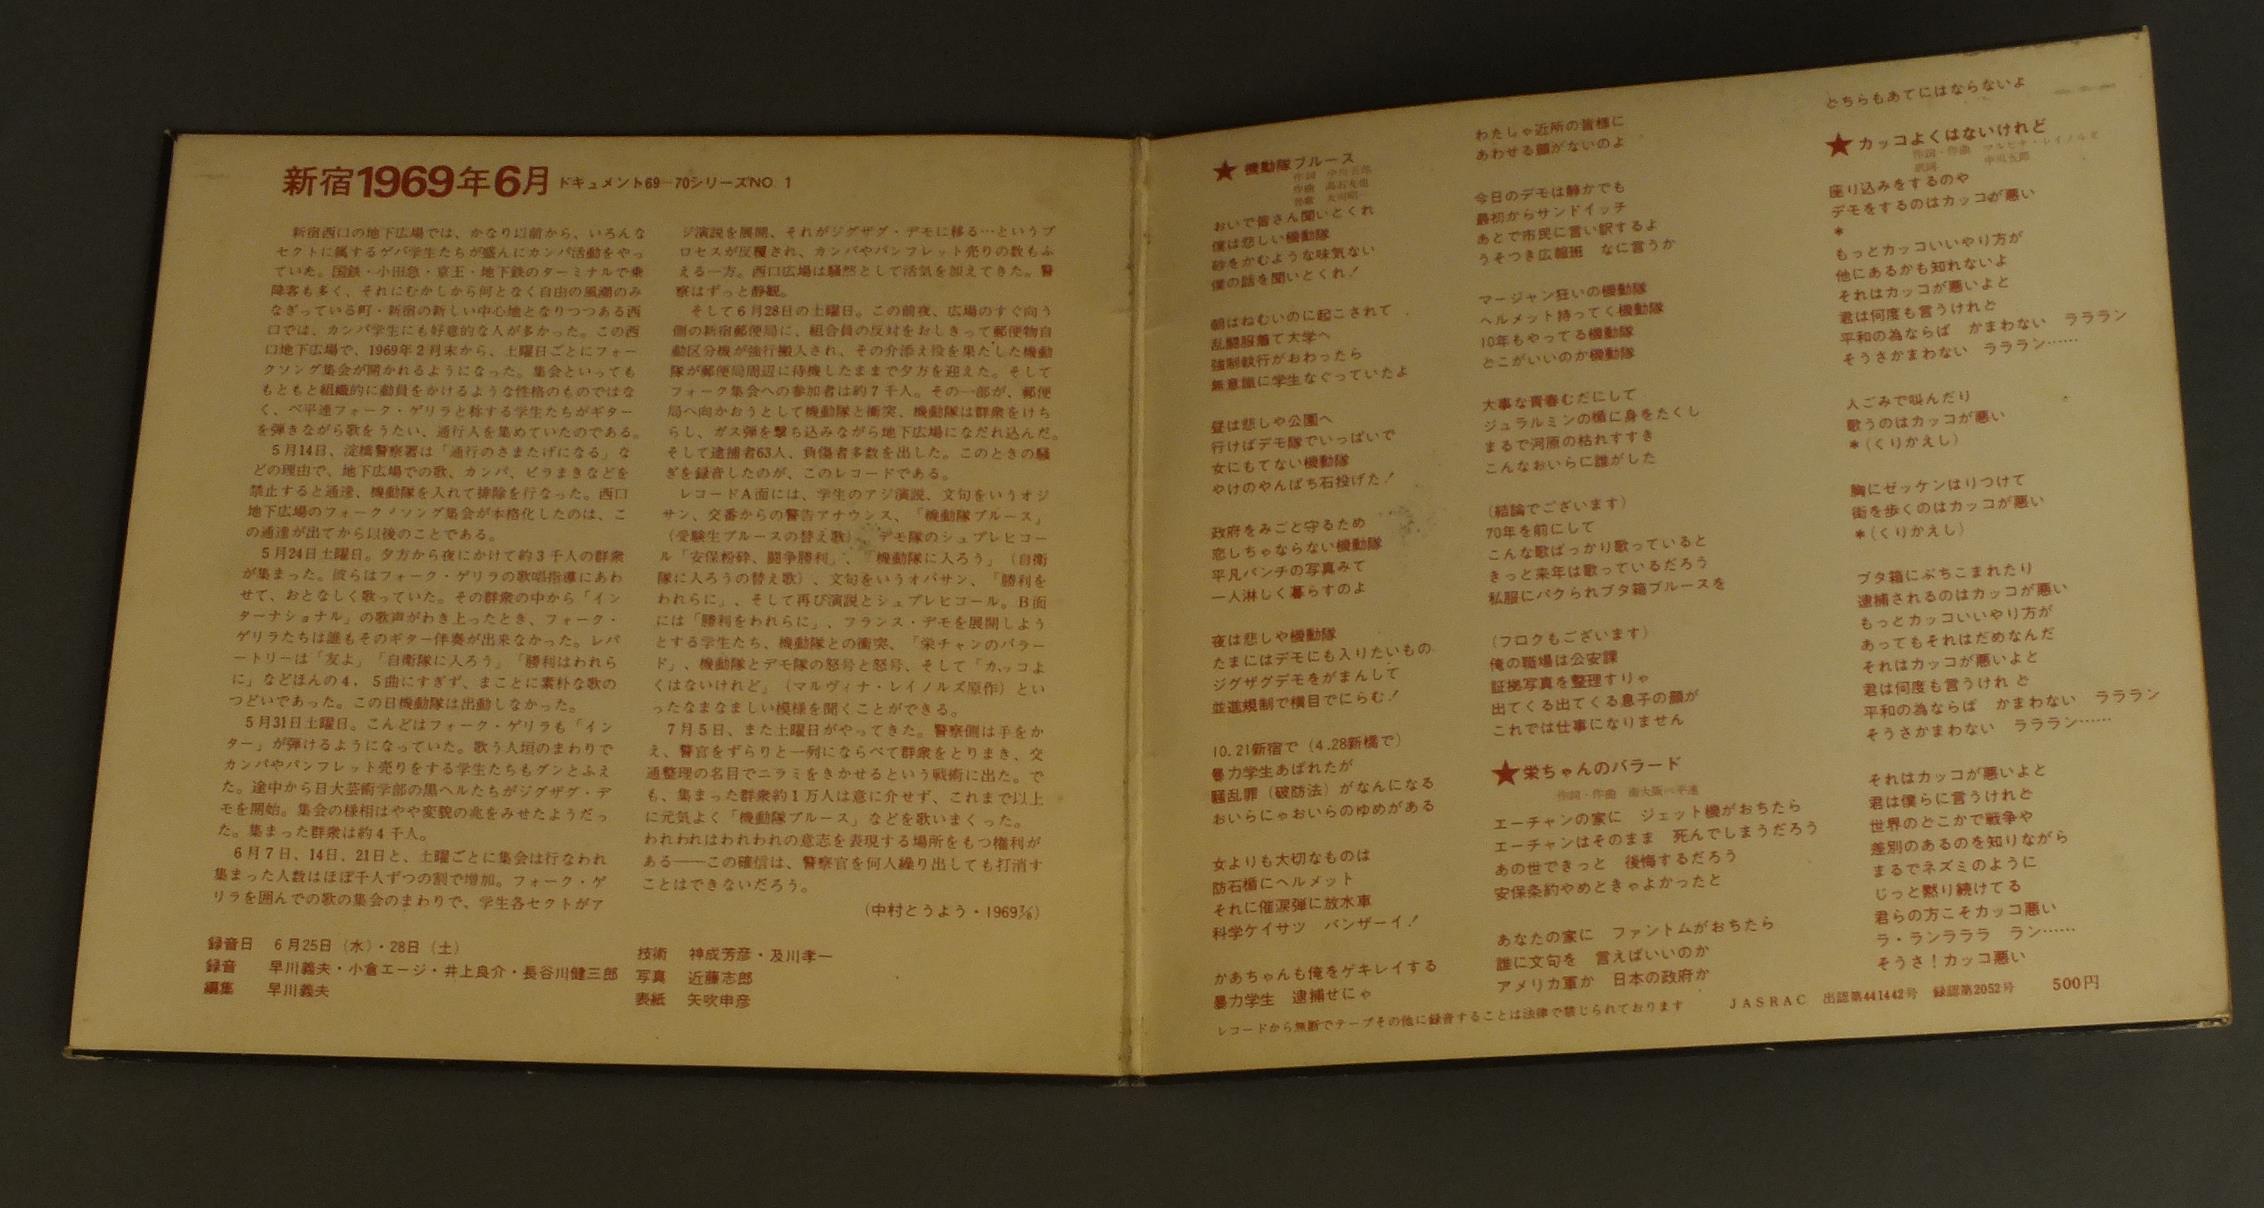 新宿1969年6月 ドキュメント69−70シリーズNO.1
新宿西口の地下広場では、かなり以前から、いろんな
セクトに属するゲバ学生たちが盛んにカンパ活動をやっ
ていた。国鉄・小田急・京王・地下鉄のターミナルで乗
降客も多く、それにむかしから何となく自由の風潮のみ
なぎっている町・新宿の新しい中心地となりつつある西
口では、カンパ学生にも好意的な人が多かった。この西
口地下広場で、1969年2月末から、土曜日ごとにフォー
クソング集会が開かれるようになった。集会といっても
もともと組織的に動員をかけるような性格のものではな
く、ベ平連フォーク・ゲリラと称する学生たちがギター
を弾きながら歌をうたい、通行人を集めていたのである。
5月14日、淀橋警察署は「通行のさまたげになる」な
どの理由で、地下広場での歌、カンパ、ビラまきなどを
禁止すると通達、機動隊を入れて排除を行なった。西口
地下広場のフォーク・ソング集会が本格化したのは、こ
の通達が出てから以後のことである。
5月24日土曜日。夕方から夜にかけて約3千人の群衆
が集まった。彼らはフォーク・ゲリラの歌唱指導にあわ
せて、おとなしく歌っていた。その群衆の中から「イン
ターナショナル」の歌声がわき上ったとき、フォーク・
ゲリラたちは誰もそのギター伴奏が出来なかった。レパ
ートリーは「友よ」「自衛隊に入ろう」「勝利はわれら
に」などほんの4，5曲にすぎず、まことに素朴な歌の
つどいであった。この日機動隊は出動しなかった。
5月31日土曜日。こんどはフォーク・ゲリラも「イン
ター」が弾けるようになっていた。歌う人垣のまわりで
カンパやパンフレット売りをする学生たちもグンとふえ
た。途中から日大芸術学部の黒ヘルたちがジグザグ・デ
モを開始。集会の様相はやや変貌の兆をみせたようだっ
た。集まった群衆は約4千人。
6月7日、14日、21日と、土曜ごとに集会は行なわれ
集まった人数はほぼ千人ずつの割で増加。フォーク・ゲ
リラを囲んでの歌の集会のまわりで、学生各セクトがア
ジ演説を展開、それがジグザグ・デモに移る…というプ
ロセスが反覆され、カンパやパンフレット売りの数もふ
える一方。西口広場は騒然として活気を加えてきた。警
察はずっと静観。
そして6月28日の土曜日。この前夜、広場のすぐ向う
側の新宿郵便局に、組合員の反対をおしきって郵便物自
動区分機が強行搬入され、その介添え役を果たした機動
隊が郵便局周辺に待機したままで夕方を迎えた。そして
フォーク集会への参加者は約7千人。その一部が、郵便
局へ向かおうとして機動隊と衝突、機動隊は群衆をけち
らし、ガス弾を撃ち込みながら地下広場になだれ込んだ。
そして逮捕者63人、負傷者多数を出した。このときの騒
ぎを録音したのが、このレコードである。
レコードA面には、学生のアジ演説、文句をいうオジ
サン、交番からの警告アナウンス、「機動隊ブルース」
（受験生ブルースの替え歌）、デモ隊のシュプレヒコー
ル「安保粉砕、闘争勝利」、「機動隊に入ろう」（自衛
隊に入ろうの替え歌）、文句をいうオバサン、「勝利を
われらに」、そして再び演説とシュプレヒコール。B面
には「勝利をわれらに」、フランス・デモを展開しよう
とする学生たち、機動隊との衝突、「栄チャンのバラー
ド」、機動隊とデモ隊の怒号と怒号、そして「カッコよ
くはないけれど」（マルヴィナ・レイノルズ原作）とい
ったなまなましい模様を聞くことができる。
7月5日、また土曜日がやってきた。警察側は手をか
え、警官をずらりと一列にならべて群衆をとりまき、交
通整理の名目でニラミをきかせるという戦術に出た。で
も、集まった群衆約1万人は意に介せず、これまで以上
に元気よく「機動隊ブルース」などを歌いまくった。
われわれはわれわれの意志を表現する場所をもつ権利が
ある——この確信は、警察官を何人繰り出しても打消す
ことはできないだろう。
（中村とうよう・1969 7/8）
録音日 6月25日（水）・28日（土）
録音 早川義夫・小倉エージ・井上良介・長谷川健三郎
編集 早川義夫
技術 神成芳彦・及川孝一
写真 近藤志郎
表紙 矢吹申彦
★機動隊ブルース
作詞 中川五郎
作曲 高石友也
おいで皆さん聞いとくれ
僕は悲しい機動隊
砂をかむような味気ない
僕の話を聞いとくれ！
朝はねむいのに起こされて
乱闘服着て大学へ
強制執行がおわったら
無意識に学生なぐっていたよ
昼は悲しや公園へ
行けばデモ隊でいっぱいで
女にもてない機動隊
やけのやんぱち石投げた！
政府をみごと守るため
恋しちゃならない機動隊
平凡パンチの写真みて
一人淋しく暮らすのよ
夜は悲しや機動隊
たまにはデモにも入りたいもの
ジグザグデモをがまんして
並進規制で横目でにらむ！
10.21新宿で（4.28新橋で）
暴力学生あばれたが
騒乱罪（破防法）がなんになる
おいらにゃおいらのゆめがある
女よりも大切なものは
防石楯にヘルメット
それに催涙弾に放水車
科学ケイサツ バンザーイ！
かあちゃんも俺をゲキレイする
暴力学生 逮捕せにゃ
わたしゃ近所の皆様に
あわせる顔がないのよ
今日のデモは静かでも
最初からサンドイッチ
あとで市民に言い訳するよ
うそつき広報班 なに言うか
マージャン狂いの機動隊
ヘルメット持ってく機動隊
10年もやってる機動隊
どこがいいのか機動隊
大事な青春むだにして
ジュラルミンの楯に身をたくし
まるで河原の枯れすすき
こんなおいらに誰がした
（結論でございます）
70年を前にして
こんな歌ばっかり歌っていると
きっと来年は歌っているだろう
私服にパクられブタ箱ブルースを
（フロクもございます）
俺の職場は公安課
証拠写真を整理すりゃ
出てくる出てくる息子の顔が
これでは仕事になりません
★栄ちゃんのバラード
作詞・作曲 南大阪ベ平連
エーチャンの家に ジェット機がおちたら
エーチャンはそのまま 死んでしまうだろう
あの世できっと 後悔するだろう
安保条約やめときゃよかったと
あなたの家に ファントムがおちたら
誰に文句を 言えばいいのか
アメリカ軍か 日本の政府か
どちらもあてにはならないよ
★カッコよくはないけれど
作詞・作曲 マルビナ・レイノルズ
訳詞 中川五郎
座り込みをするのや
デモをするのはカッコが悪い
＊
もっとカッコいいやり方が
他にあるかも知れないよ
それはカッコが悪いよと
君は何度も言うけれど
平和の為ならば かまわない ラララン
そうさかまわない ラララン……
人ごみで叫んだり
歌うのはカッコが悪い
＊（くりかえし）
胸にゼッケンはりつけて
街を歩くのはカッコが悪い
＊（くりかえし）
ブタ箱にぶちこまれたり
逮捕されるのはカッコが悪い
もっとカッコいいやり方が
あってもそれはだめなんだ
それはカッコが悪いよと
君は何度も言うけれ ど
平和の為ならば かまわない ラララン
そうさかまわない ラララン……
それはカッコが悪いよと
君は僕らに言うけれど
世界のどこかで戦争や
差別のあるのを知りながら
まるでネズミのように
じっと黙り続けてる
君らの方こそカッコ悪い
ラ・ランラララ ラン……
そうさ！カッコ悪い
レコードから無断でテープその他に録音することは法律で禁じられております
JASRAC 出認第441442号 録認第2052号 500円